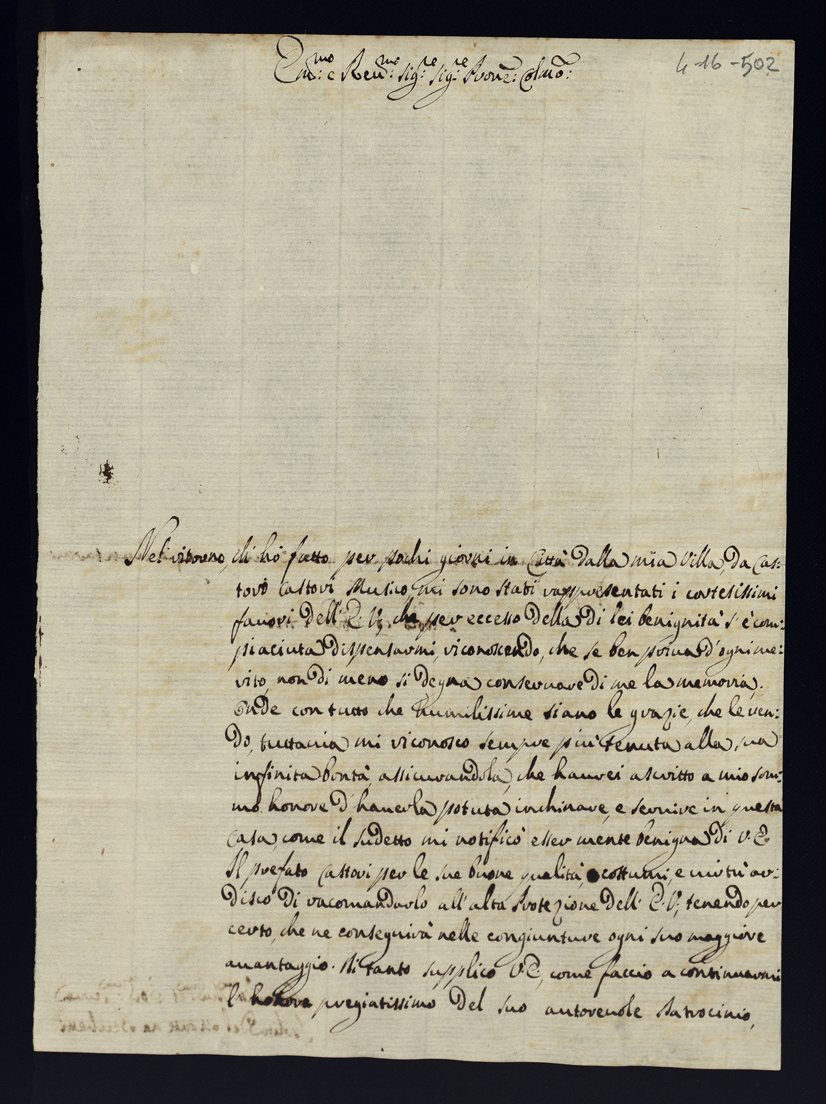 Em.mo: e Reu.mo: Sig.re Sig.re Prone: Colmo:
4-16-502
Nel ritorno, ch'hò fatto per pochi giorni in Città dalla mia Villa, da Cas-
torò Castori Musico mi sono stati rappresentati i cortesissimi
fauori dell' E. V., che per eccesso della di lei benignità s'è com-
piaciuta dispensarmi, riconoscendo, che se ben priua d'ogni me-
rito, non di meno si degna conseruare di me la memoria.
Onde con tutto che humilissime siano le grazie, che le ren-
do, tuttauia mi riconosco sempre più tenuta alla sua
infinita bontà, assicurandola, che haurei ascritto a mio som-
mo honore d'hauerla potuta inchinare, e seruire in questa
Casa, come il sudetto mi notificò esser mente benigna di V. E.
Il prefato Castori per le sue buone qualità, costumi, e uirtù ar-
disco di racomandarlo all'alta Protezione dell' E. V., tenendo per
certo, che ne conseguirà nelle congiunture ogni suo maggiore
auantaggio. Di tanto supplico V. E., come faccio a continuarmi
l'honore pregiatissimo del suo autoreuole Patrocinio,